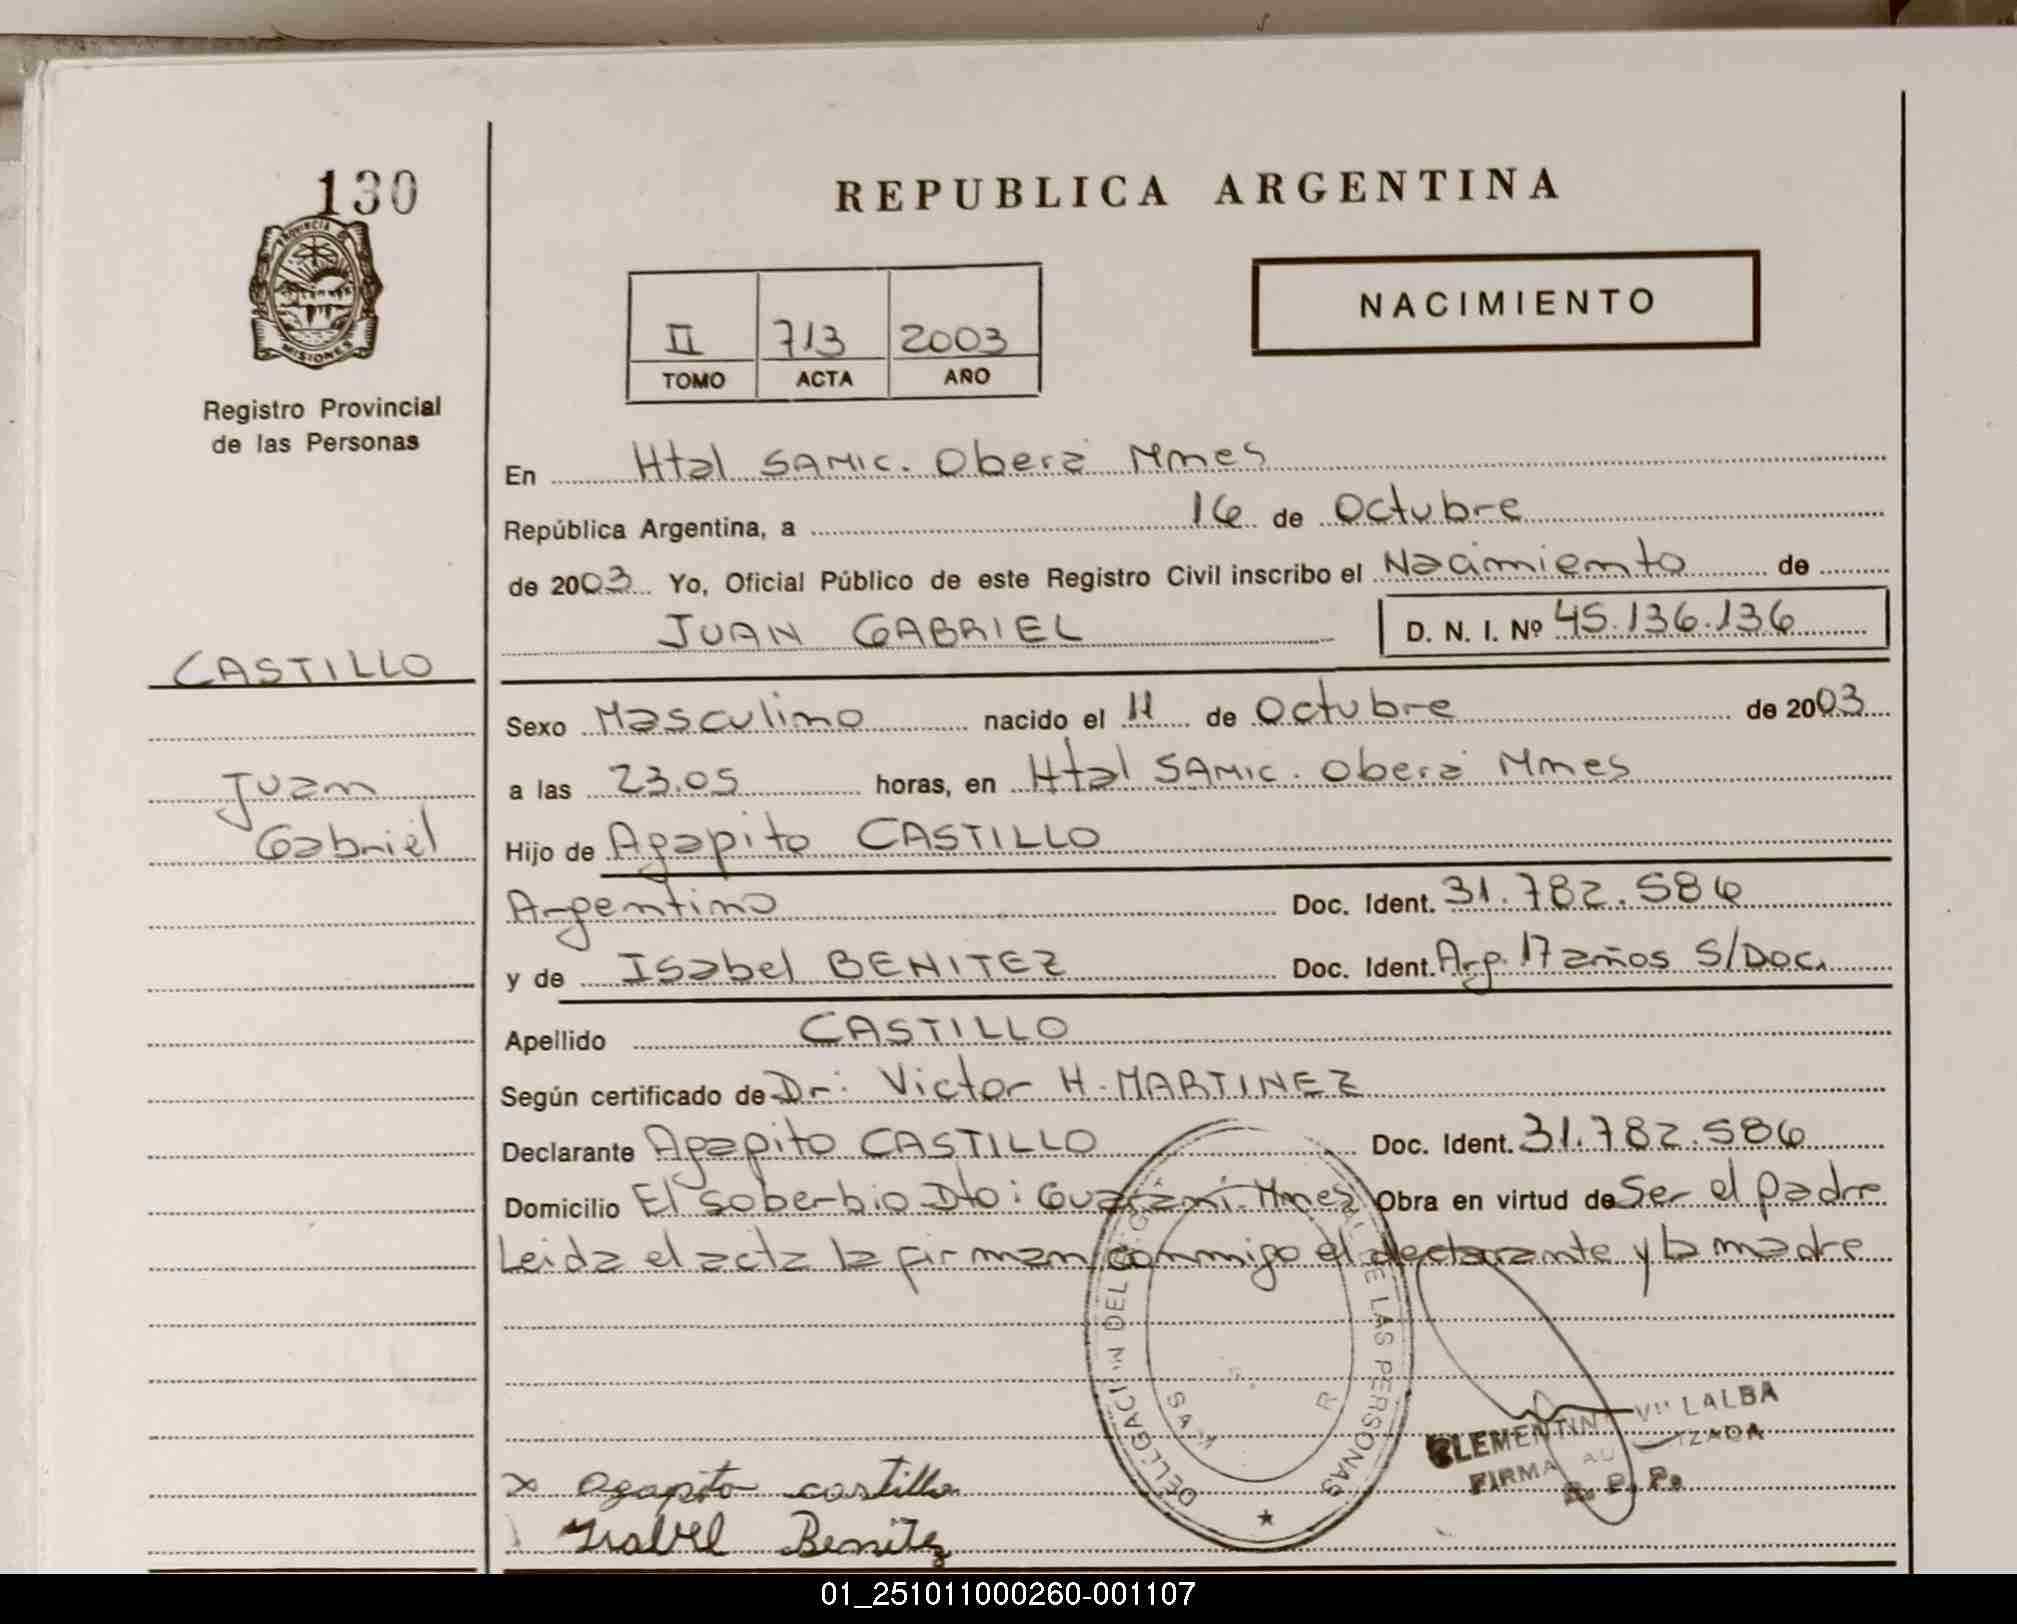 130
PROVINCIA DE
MISIONES
Registro Provincial
de las Personas
REPUBLICA ARGENTINA
NACIMIENTO
II 713 2003
TOMO ACTA AÑO
En Htal SAMIC. Oberá Mnes
República Argentina, a 16 de Octubre
de 2003 Yo, Oficial Público de este Registro Civil inscribo el Nacimiento de
JUAN GABRIEL D. N. I. Nº 45.136.136
CASTILLO
Juan
Gabriel
Sexo Masculino nacido el 11 de Octubre de 2003
a las 23.05 horas, en Htal SAMIC. Oberá Mnes
Hijo de Agapito CASTILLO
Argentino Doc. Ident. 31.782.586
y de Isabel BENITEZ Doc. Ident. Arg. 17 años S/Doc.
Apellido CASTILLO
Según certificado de Dr: Victor H. MARTINEZ
Declarante Agapito CASTILLO Doc. Ident. 31.782.586
Domicilio El Soberbio Dto: Guaraní. Mnes Obra en virtud de Ser el padre
Leida el acta la firman conmigo el declarante y la madre
DELEGACION DEL DE LAS PERSONAS
FIRMA
R. P. P.
x agapito castillo
Isabel Benitez
01_251011000260-001107